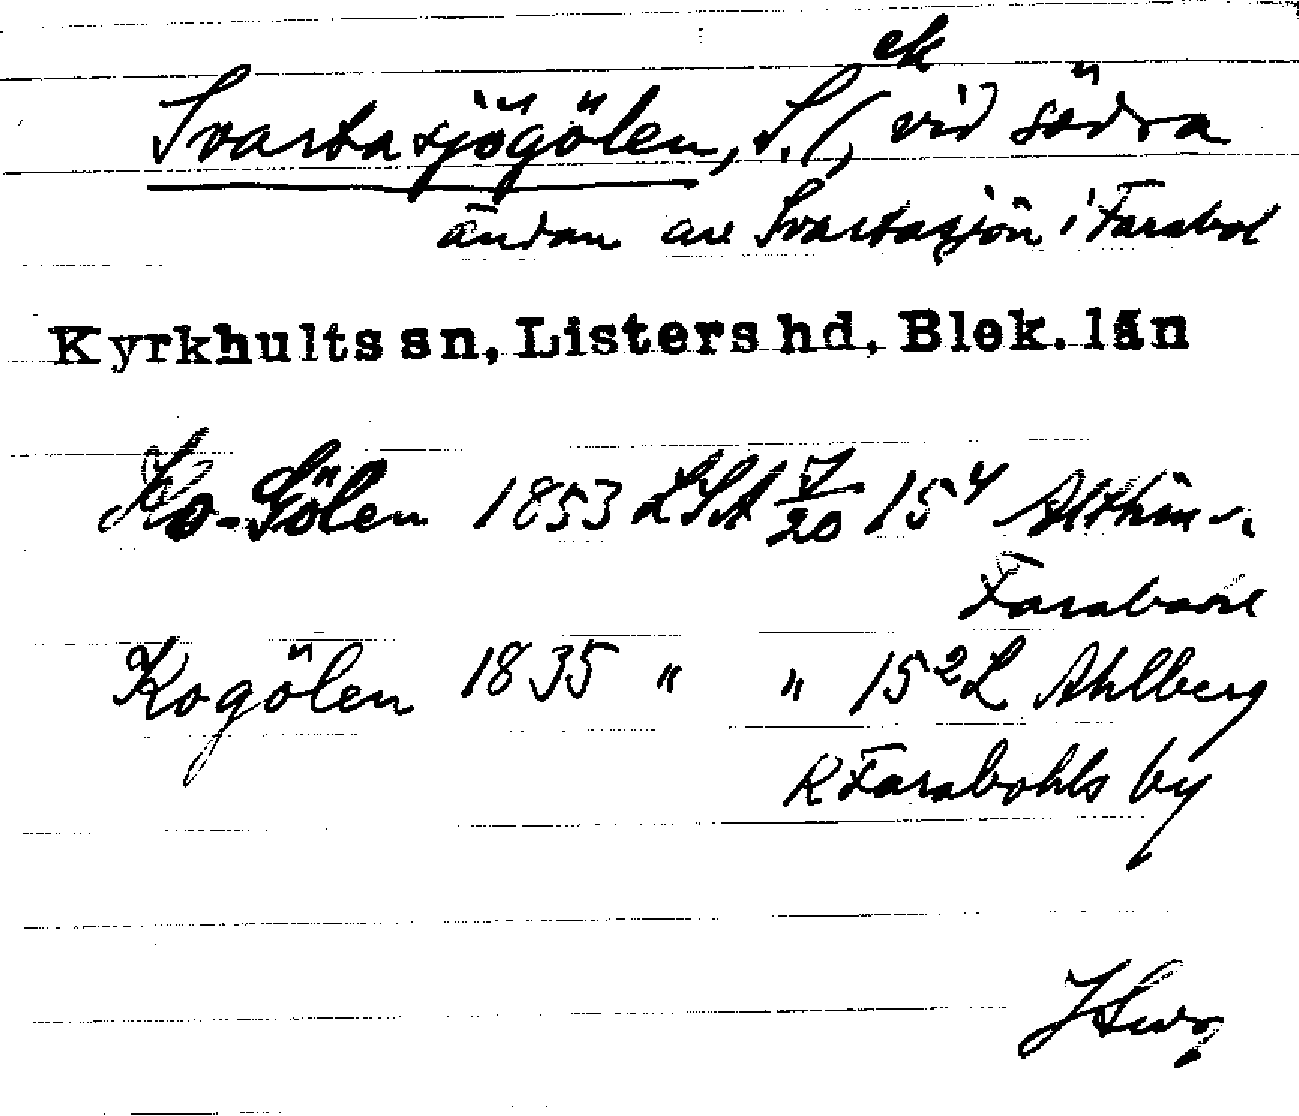 ek
Svartasjögölen, S. (, vid södra
ändan av Svartasjön i Farabol
Kyrkhults sn, Listers hd, Blek. län
Ko-Gölen 1853 LSA 7/20 15⁴
Kogölen 1835 " " 15² L Ahlberg
R Farabohls by